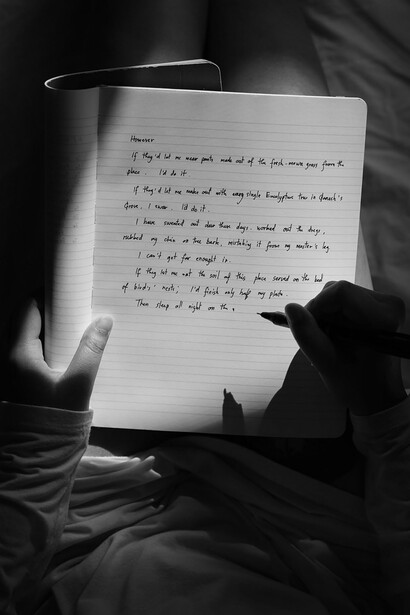 However
If they'd let me wear pants made out of the fresh-mown grass from the
place. I'd do it.
If they'd let me make out with every single Eucalyptus tree in
Grove. I swear. I'd do it.
I have sweated out dear than days. worked out the days,
rubbed my chin on tree bark, mistaking it from my master's leg
I can't get far enough in.
If they let me eat the soil of this place served on the bed
of bird's nests, I'd finish only half my plate.
Then sleep all night on the